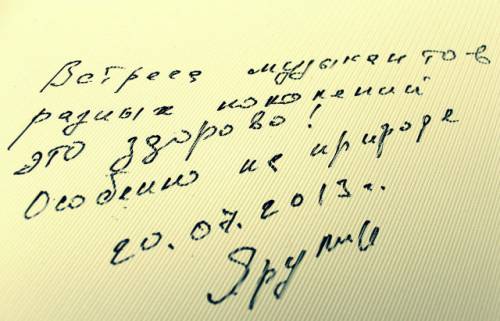 Встреча музыкантов
разных поколений
это здорово!
Особенно на природе
20.07.2013г.